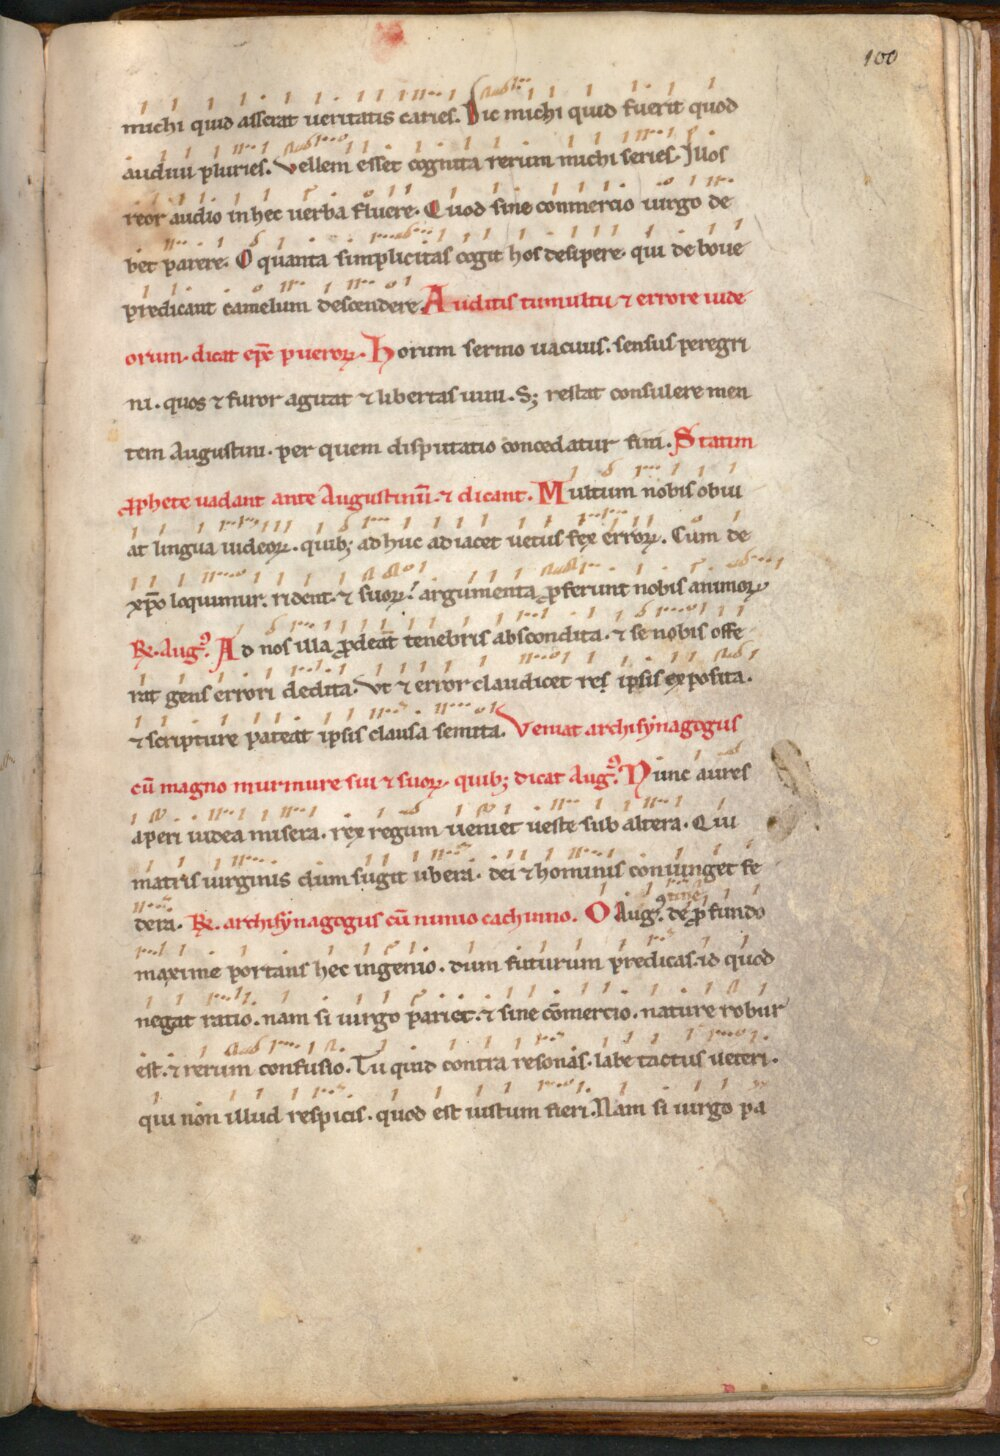 100
michi quid asserat ueritatis caries. Dic michi quid fuerit quod
audiui pluries. vellem esset cognita rerum michi series. Illos
reor audio in hec uerba fluere. Quod sine conmercio uirgo de
bet parere. O quanta simplicitas cogit hos desipere. qui de boue
predicant camelum descendere. Auditis tumultu ⁊ errore iude
orum. dicat ep̄c pueroꝝ. horum sermo uacuus. sensus peregri
ni. quos ⁊ furor agitat ⁊ libertas uini. Sꝫ restat consulere men
tem Augustini. per quem disputatio concedatur fini. Statim
ꝓphete uadant ante Augustinū. ⁊ dicant. Multum nobis obui
at lingua iudeoꝝ. quibꝫ adhuc adiacet uetus fex erroꝝ. Cum de
xp̄o loquimur. rident. ⁊ suoꝝ. argumenta ꝓferunt nobis animoꝝ
R̸. Augꝰ. Ad nos illa ꝓdeat tenebris abscondita. ⁊ se nobis offe
rat gens errori dedita. vt ⁊ error claudicet res ipsis exposita.
⁊ scripture pateat ipsis clausa semita. Veniat archisynagogus
cū magno murmure sui ⁊ suoꝝ. quibꝫ dicat Augꝰ. Nunc aures
aperi iudea misera. rex regum ueniet ueste sub altera. Qui
matris uirginis dum sugit ubera. dei ⁊ hominis coniunget fe
dera. R̸. archisynagogus cū nimio cachinno. O Augꝰ. de ꝓfundo
maxime portans hec ingenio. dum futurum predicas. id quod
negat ratio. nam si uirgo pariet. ⁊ sine cōmercio. nature robur
est. ⁊ rerum confusio. Tu quid contra resonas. labe tactus ueteri.
qui non illud respicis. quod est iustum fieri. Nam si uirgo pa